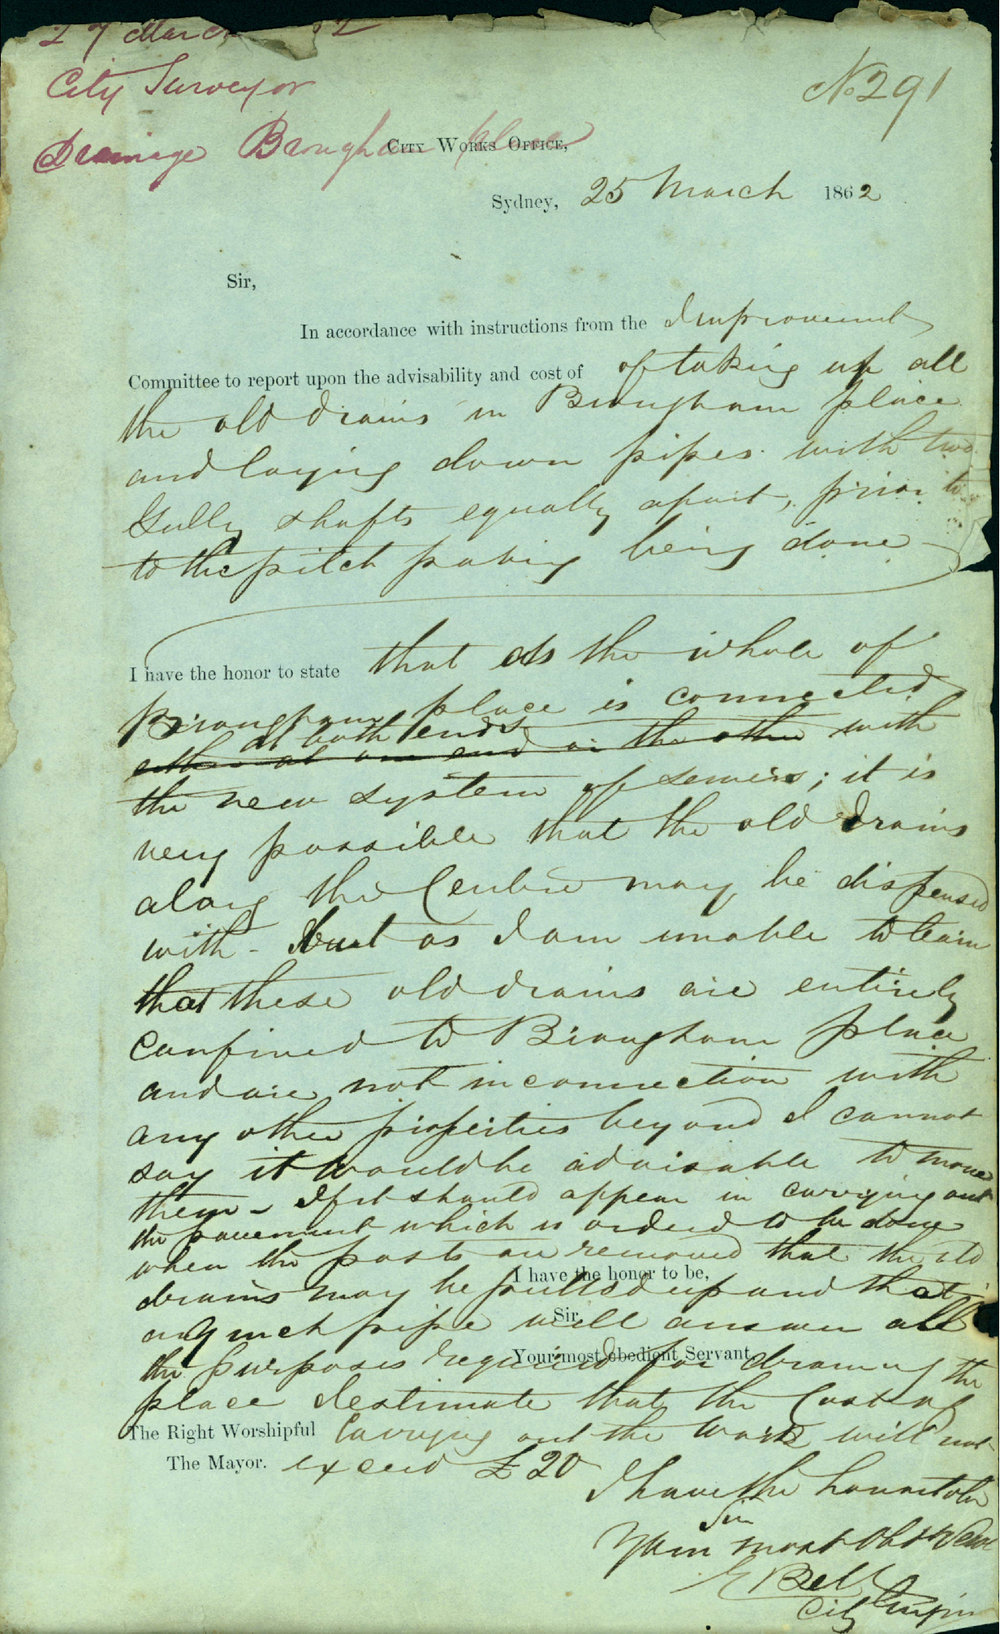 27 March 62
City Surveyor
No 291
Drainage Brougham place
City Works Office,
Sydney, 25 March 1862
Sir,
In accordance with instructions from the Improvement
Committee to report upon the advisability and cost of of taking up all
the old drains in Brougham place
and laying down pipes with two
Gully shafts equally apart, prior to
to the pitch paving being done
I have the honor to state that as the whole of
Brougham place is connected
at both ends
either at one end or the other with
the new system of sewers; it is
very possible that the old drains
along the Centre may be dispensed
with - but as I am unable to learn
that these old drains are entirely
confined to Brougham place
and are not in connection with
any other properties beyond I cannot
say it would be advisable to move
them - If it should appear in carrying out
the pavement which is ordered to be done
when the posts are removed that the old
drains may be pulled up and that
I have the honor to be,
a 9 inch pipe will answer all
Sir,
the purposes required for draining the
Your most obedient Servant,
place I estimate that the Cost of
The Right Worshipful Carrying out the work will not
The Mayor. exceed £20
I have the honor to be
Sir
Your most Obt Servt
E Bell
City Engin